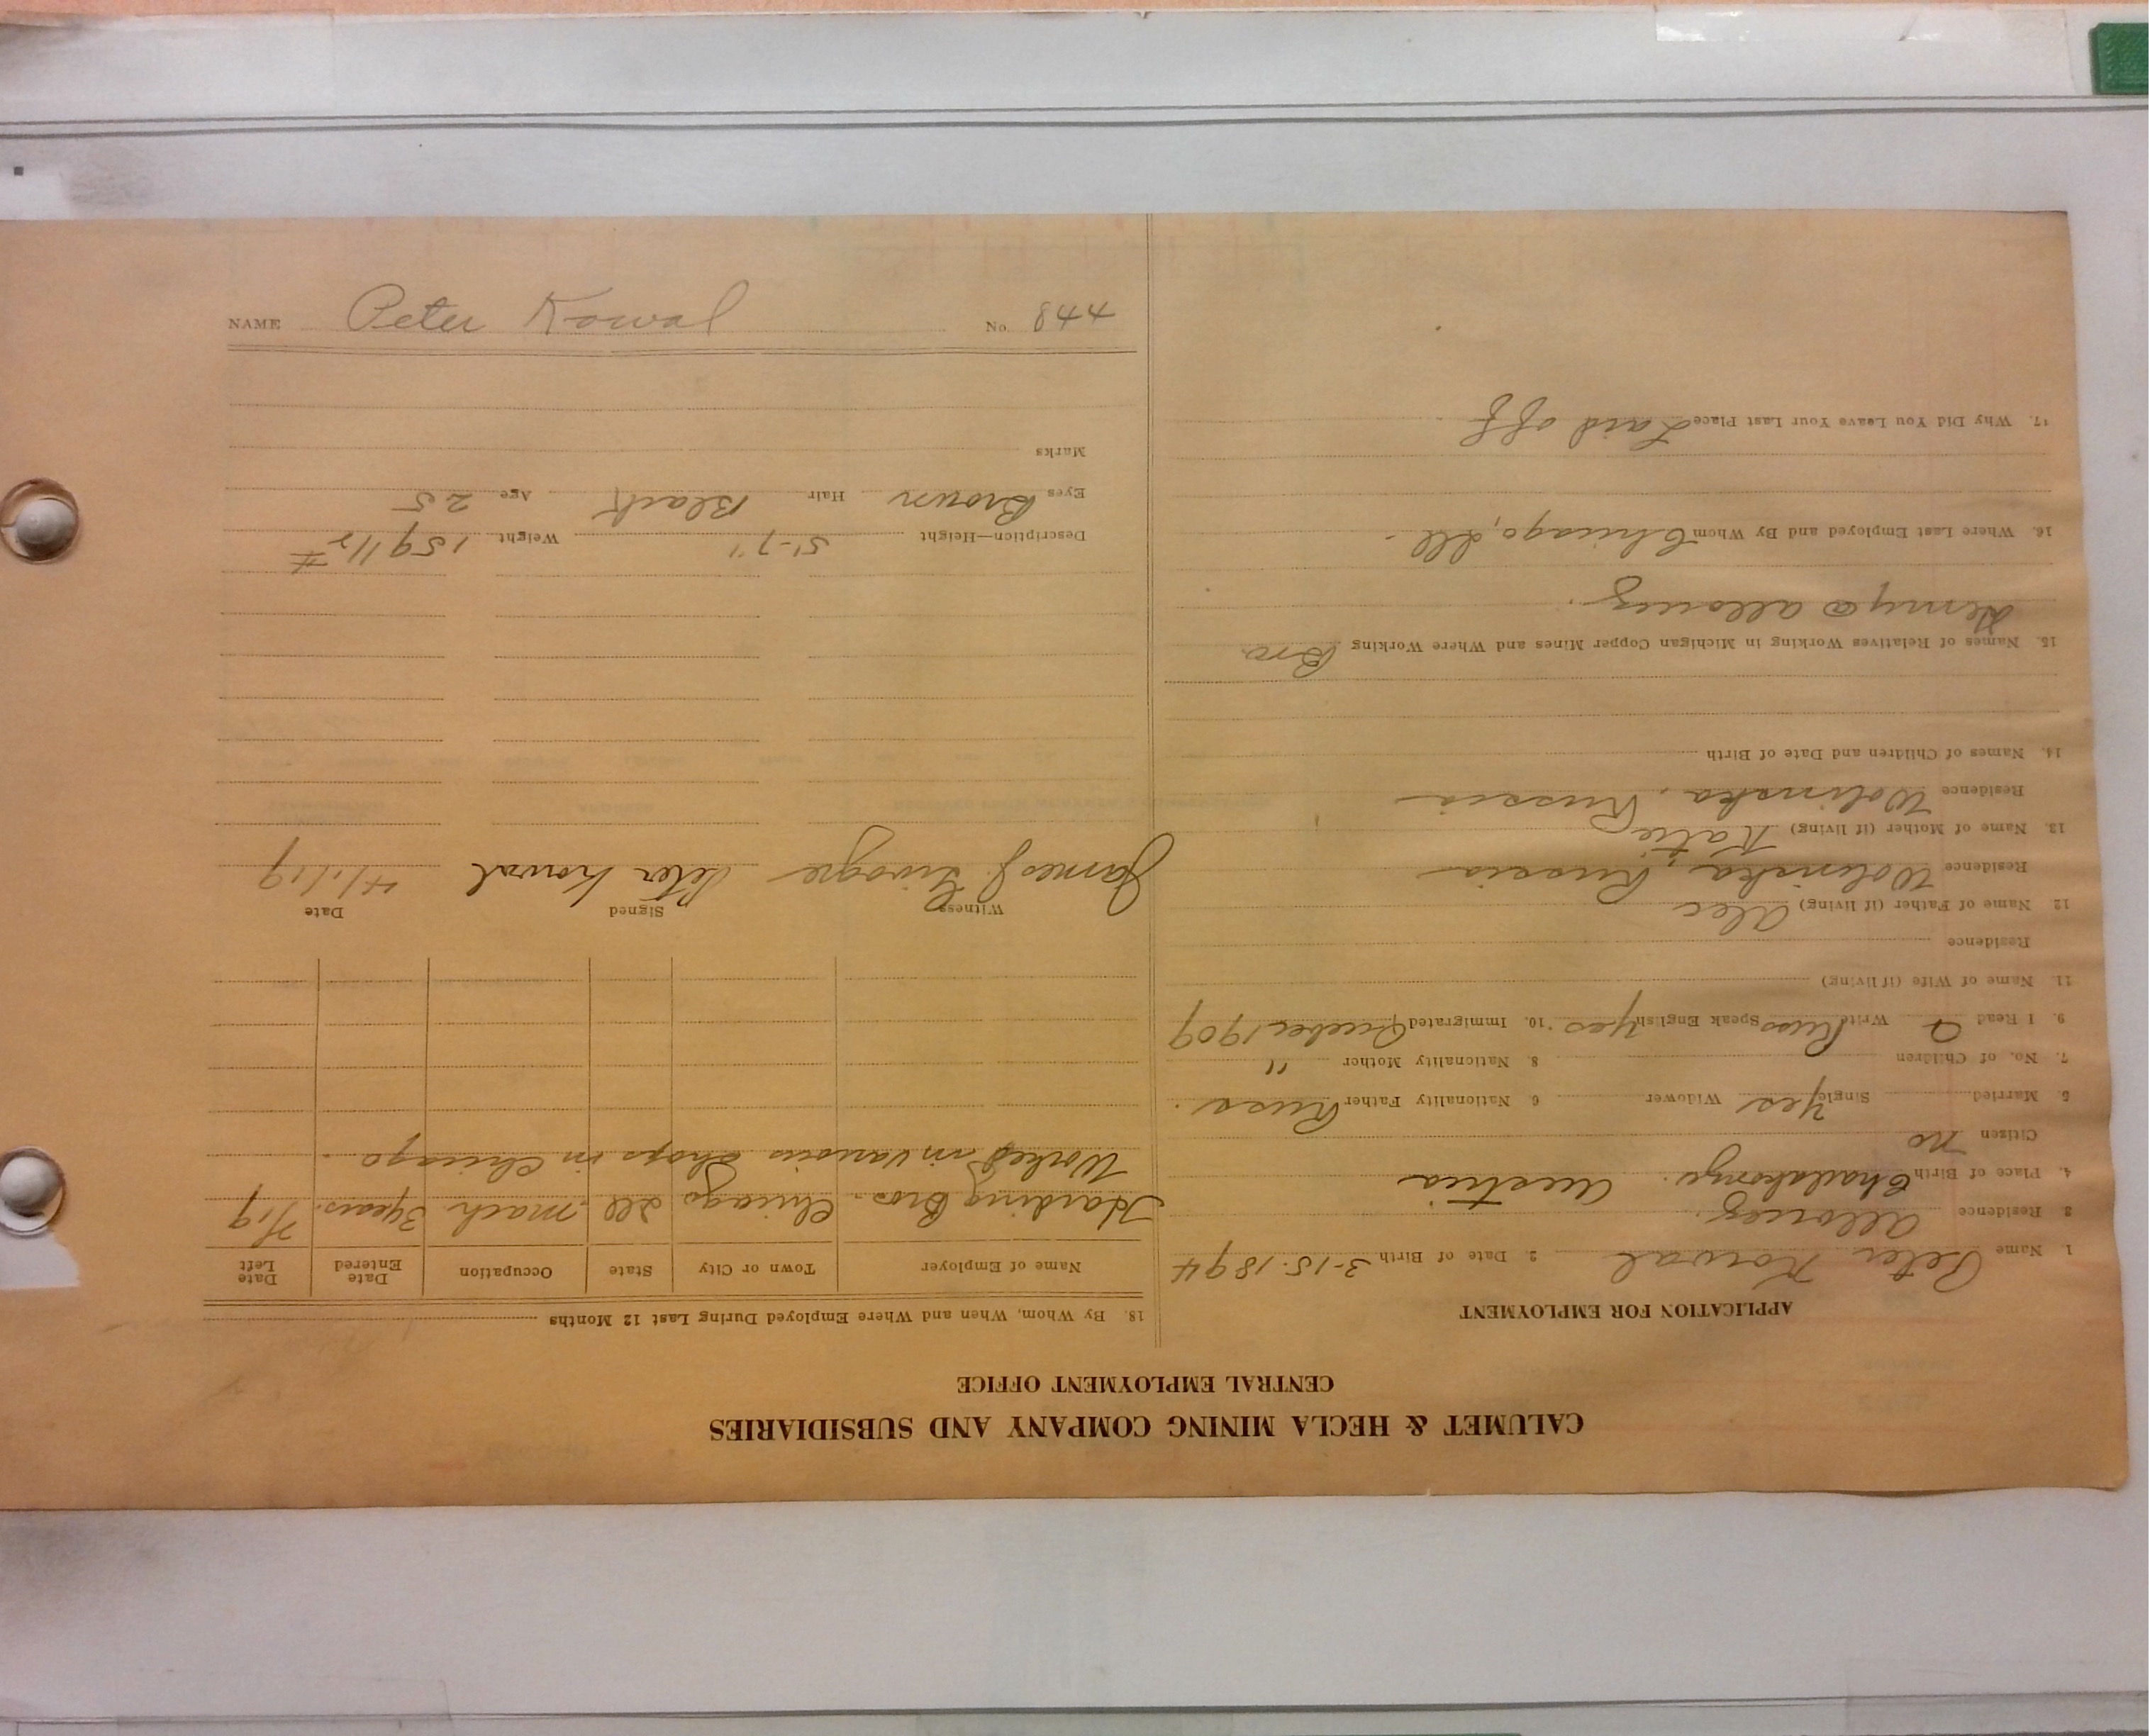 CALUMET & HECLA MINING COMPANY AND SUBSIDIARIES
CENTRAL EMPLOYMENT OFFICE
APPLICATION FOR EMPLOYMENT
1. Name Peter Kowal 2. Date of Birth 3-15-1894
3. Residence Allouez.
4. Place of Birth Austria
Citizen no
5. Married Single Yes Widower 6 Nationality Father Russ.
7. No. of Children 8. Nationality Mother "
9. I Read & Write Russ Speak English Yes 10. Immigrated 1909
11. Name of Wife (if living)
Residence
12 Name of Father (if living) Alec
Residence Wolinska, Russia
13. Name of Mother (if living) Katie
Residence Wolinska, Russia
14. Names of Children and Date of Birth
15. Names of Relatives Working in Michigan Copper Mines and Where Working Bro
@ Allouez.
16. Where Last Employed and By Whom Chicago, Ill.
17. Why Did You Leave Your Last Place Laid off
18. By Whom, When and Where Employed During Last 12 Months
Name of Employer Town or City State Occupation Date Entered Date Left
Harding Bros. Chicago Ill mach 3 years. /19
Worked in various shops in Chicago.
Witness Signed Date
James J. Peter Kowal 4/1/19
Description—Height 5'-7" Weight 159 1/2 #
Eyes Brown Hair Black Age 25
Marks
NAME Peter Kowal No. 844